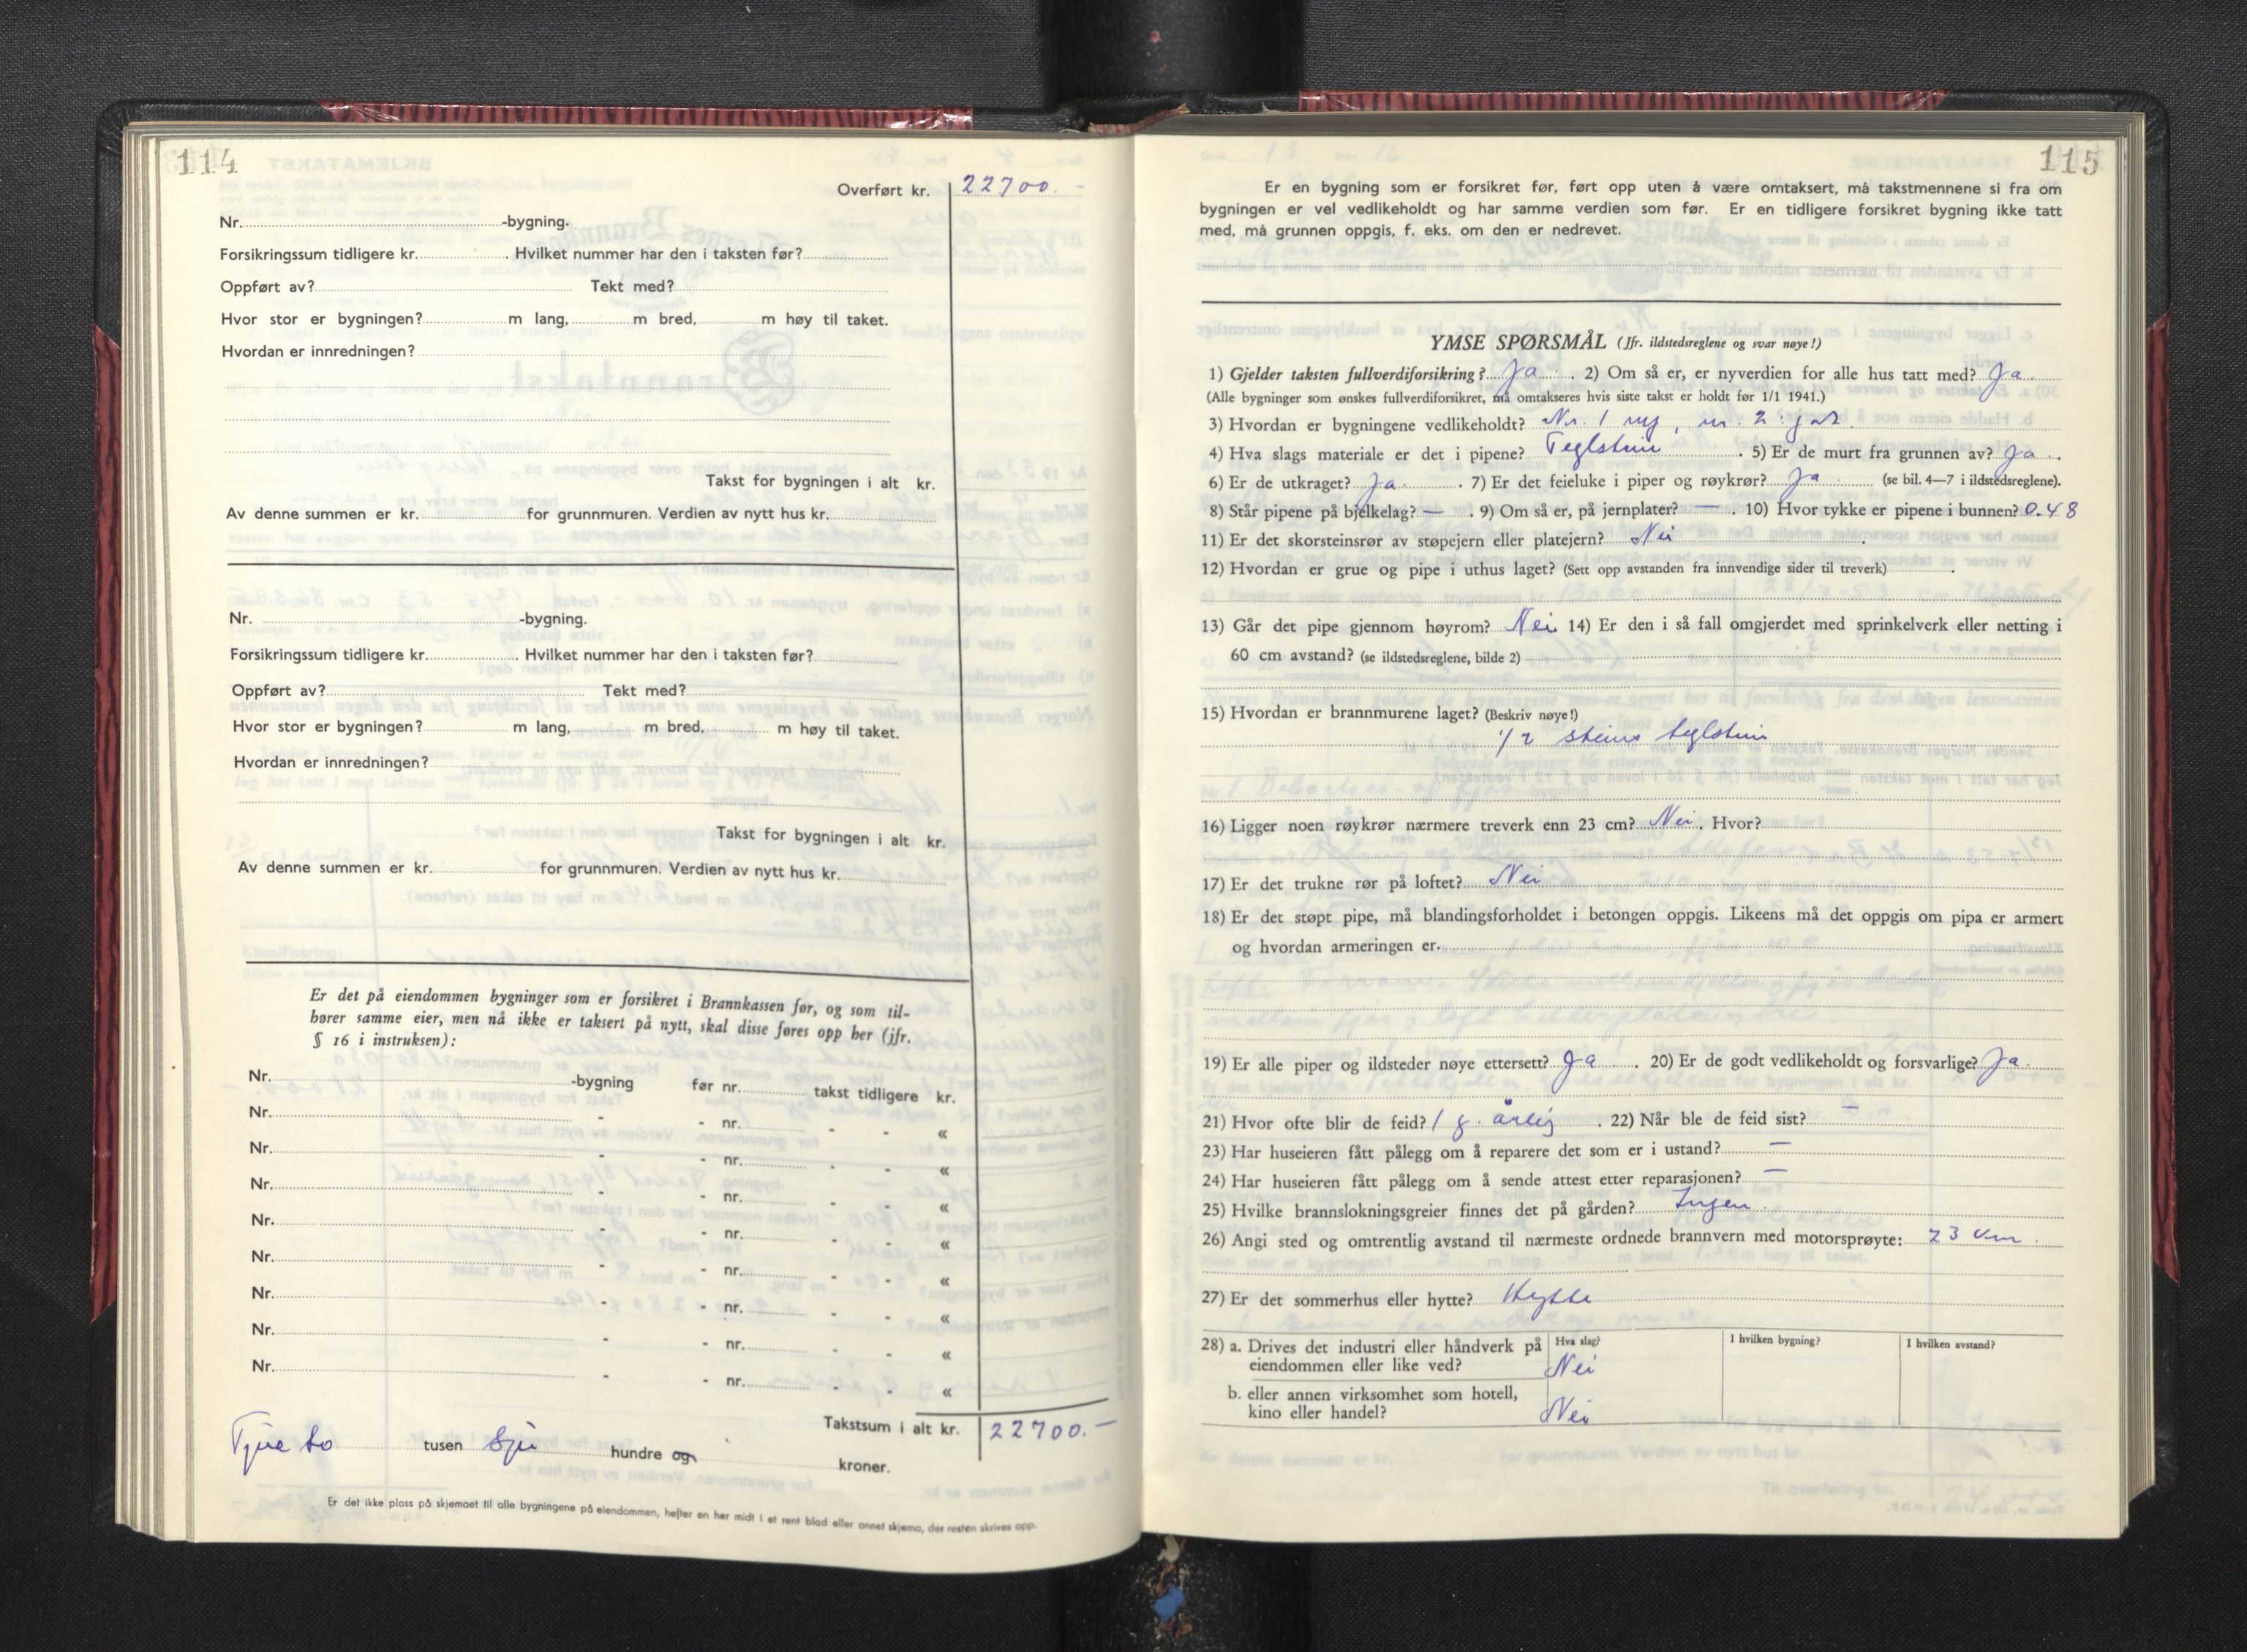 114
Overført kr. 22700.-
Nr. -bygning.
Forsikringssum tidligere kr. . Hvilket nummer har den i taksten før?
Oppført av? Tekt med?
Hvor stor er bygningen? m lang, m bred, m høy til taket.
Hvordan er innredningen?
Takst for bygningen i alt kr.
Av denne summen er kr. for grunnmuren. Verdien av nytt hus kr.
Nr. -bygning.
Forsikringssum tidligere kr. . Hvilket nummer har den i taksten før?
Oppført av? Tekt med?
Hvor stor er bygningen? m lang, m bred, m høy til taket.
Hvordan er innredningen?
Takst for bygningen i alt kr.
Av denne summen er kr. for grunnmuren. Verdien av nytt hus kr.
Er det på eiendommen bygninger som er forsikret i Brannkassen før, og som til-
hører samme eier, men nå ikke er taksert på nytt, skal disse føres opp her (jfr.
§ 16 i instruksen):
Nr. -bygning før nr. takst tidligere kr.
Nr. - - nr. - - «
Nr. - - nr. - - «
Nr. - - nr. - - «
Nr. - - nr. - - «
Nr. - - nr. - - «
Nr. - - nr. - - «
Nr. - - nr. - - «
Nr. - - nr. - - «
Takstsum i alt kr. 22700.-
Tjue to tusen sju hundre og kroner.
Er det ikke plass på skjemaet til alle bygningene på eiendommen, hefter en her midt i et rent blad eller annet skjema, der resten skrives opp.
115
Er en bygning som er forsikret før, ført opp uten å være omtaksert, må takstmennene si fra om
bygningen er vel vedlikeholdt og har samme verdien som før. Er en tidligere forsikret bygning ikke tatt
med, må grunnen oppgis, f. eks. om den er nedrevet.
YMSE SPØRSMÅL (Jfr. ildstedsreglene og svar nøye!)
1) Gjelder taksten fullverdiforsikring? Ja. 2) Om så er, er nyverdien for alle hus tatt med? Ja.
(Alle bygninger som ønskes fullverdiforsikret, må omtakseres hvis siste takst er holdt før 1/1 1941.)
3) Hvordan er bygningene vedlikeholdt? Nr. 1 ny, nr. 2 godt
4) Hva slags materiale er det i pipene? Teglstein . 5) Er de murt fra grunnen av? Ja.
6) Er de utkraget? Ja. 7) Er det feieluke i piper og røykrør? Ja (se bil. 4—7 i ildstedsreglene).
8) Står pipene på bjelkelag? — . 9) Om så er, på jernplater? — . 10) Hvor tykke er pipene i bunnen? 0.48
11) Er det skorsteinsrør av støpejern eller platejern? Nei .
12) Hvordan er grue og pipe i uthus laget? (Sett opp avstanden fra innvendige sider til treverk) .
13) Går det pipe gjennom høyrom? Nei 14) Er den i så fall omgjerdet med sprinkelverk eller netting i
60 cm avstand? (se ildstedsreglene, bilde 2)
15) Hvordan er brannmurene laget? (Beskriv nøye!)
1/2 steins teglstein
16) Ligger noen røykrør nærmere treverk enn 23 cm? Nei. Hvor?
17) Er det trukne rør på loftet? Nei
18) Er det støpt pipe, må blandingsforholdet i betongen oppgis. Likeens må det oppgis om pipa er armert
og hvordan armeringen er.
19) Er alle piper og ildsteder nøye ettersett? Ja . 20) Er de godt vedlikeholdt og forsvarlige? Ja.
21) Hvor ofte blir de feid? 1 g. årlig . 22) Når ble de feid sist? —
23) Har huseieren fått pålegg om å reparere det som er i ustand? —
24) Har huseieren fått pålegg om å sende attest etter reparasjonen? —
25) Hvilke brannslokningsgreier finnes det på gården? Ingen
26) Angi sted og omtrentlig avstand til nærmeste ordnede brannvern med motorsprøyte: 23 km.
27) Er det sommerhus eller hytte? Hytte
28) a. Drives det industri eller håndverk på eiendommen eller like ved? Hva slag? Nei I hvilken bygning? I hvilken avstand?
b. eller annen virksomhet som hotell, kino eller handel? Nei